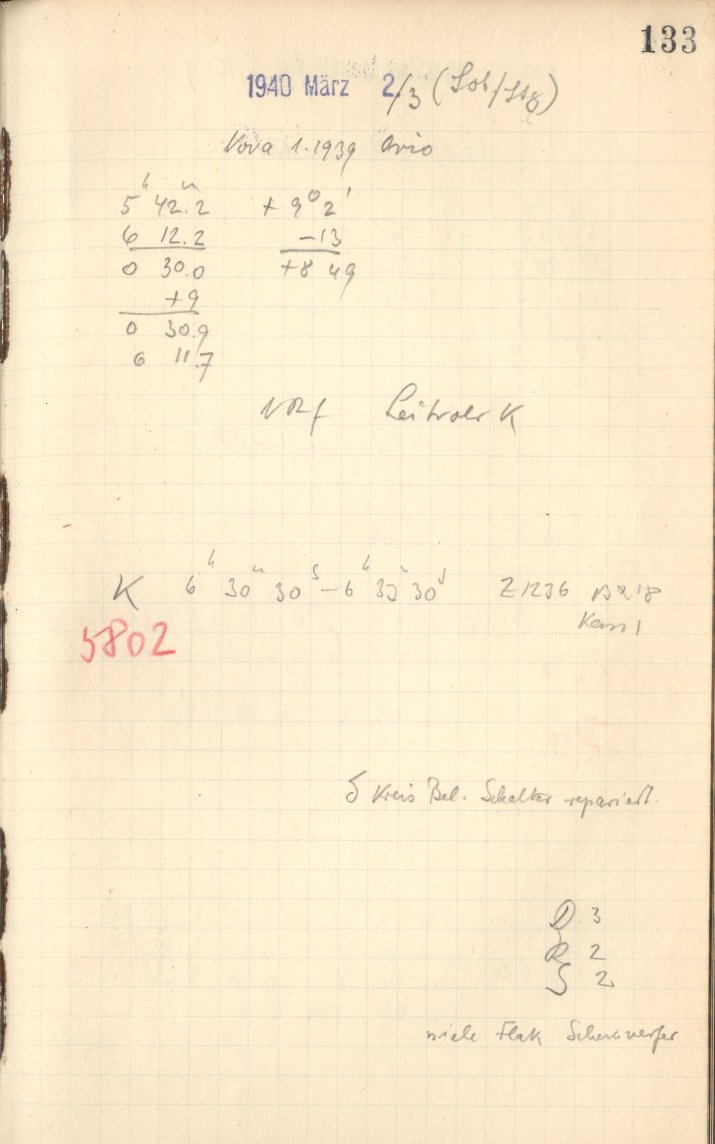 133
1940 März 2./3 (Sob/Stg)
Nova 1.1939 Orio
5ʰ 42.2ᵐ + 9° 2'
6 12.2 -13
0 30.0 +8 49
+9
0 30.9
6 11.7
Leitrohr K
K 6ʰ 30ᵐ 30ˢ - 6ʰ 35ᵐ 30ˢ Z1236
Kass 1
5802
δ Kreis Bel. Schalter repariert.
D 3
R 2
S 2
viele Flak Scheinwerfer